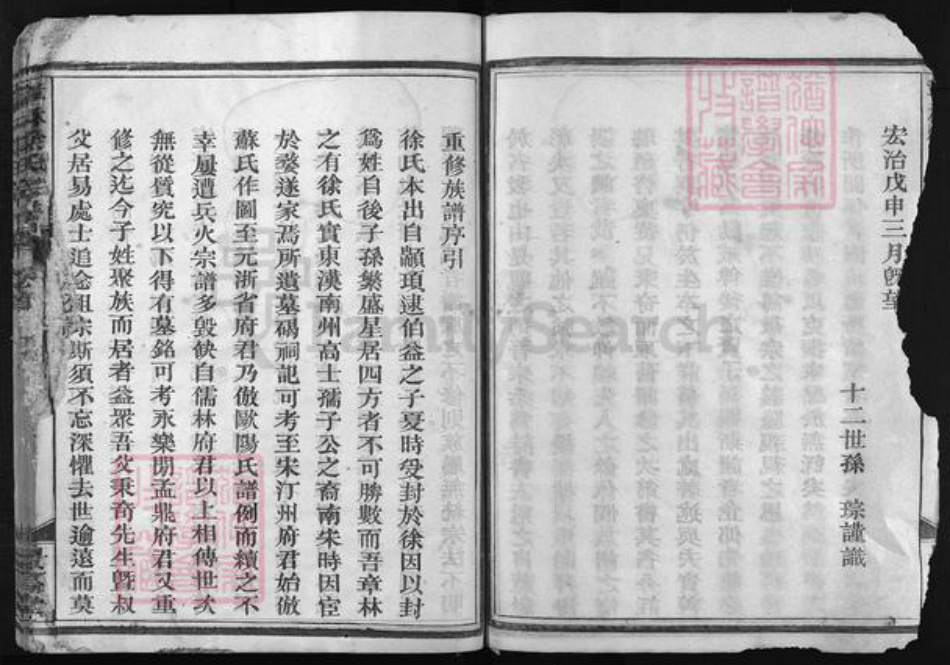 宏治戊申三月旣望
十二世孫 琮謹識
重修族譜序引
徐氏本出自顓頊逮伯益之子夏時受封於徐因以封
爲姓自後子孫繁盛星居四方者不可勝數而吾章林
之有徐氏實東漢南州高士孺子公之裔南宋時因宦
於婺遂家焉所遺墓碣祠記可考至宋汀州府君始倣
蘇氏作圖至元浙省府君乃倣歐陽氏譜例而續之不
幸屢遭兵火宗譜多毀缺自儒林府君以上相傳世次
無從質究以下得有墓銘可考永樂間孟鼎府君又重
修之迄今子姓聚族而居者益眾吾父秉奇先生曁叔
父居易處士追念祖宗斯須不忘深懼去世逾遠而莫
FamilySearch